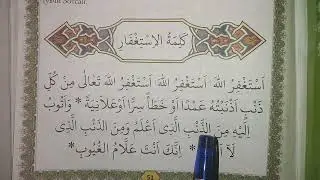 كَلِمَةُ الْاِسْتِغْفَارِ
اَسْتَغْفِرُ اللهَ اَسْتَغْفِرُ اللهَ اَسْتَغْفِرُ اللهَ تَعَالَى مِنْ كُلِّ
ذَنْبٍ اَذْنَبْتُهُ عَمْدًا اَوْ خَطَأً سِرًّا اَوْ عَلَانِيَةً * وَاَتُوبُ
اِلَيْهِ مِنَ الذَّنْبِ الَّذِى اَعْلَمُ وَمِنَ الذَّنْبِ الَّذِى
لَا * اِنَّكَ اَنْتَ عَلَّامُ الْغُيُوبِ *
51